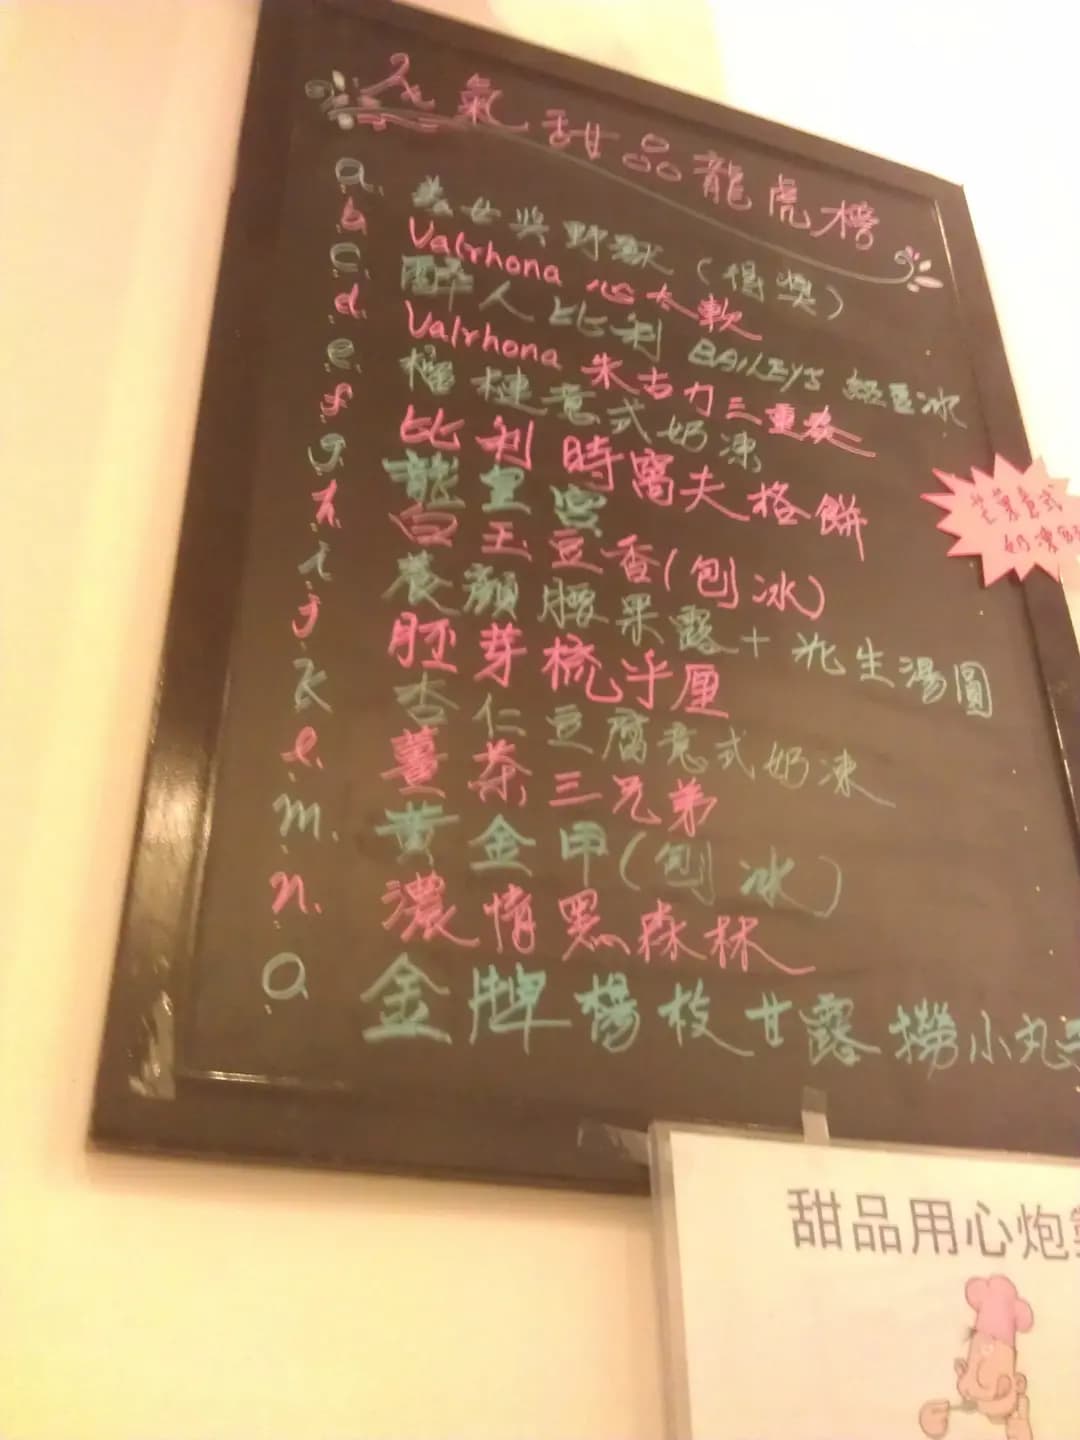 人氣甜品龍虎榜
a. 美女與野獸 (得獎)
b Valrhona 心太軟
c 醉人比利 BAILEYS 紅豆冰
d Valrhona 朱古力三重奏
e 榴槤意式奶凍
f 比利時窩夫格餅
g 龍皇宮
h 白玉豆香(刨冰)
i 養顏腰果露+花生湯圓
j 胚芽梳乎厘
k 杏仁豆腐意式奶凍
l. 薑茶三兄弟
m. 黃金甲(刨冰)
n. 濃情黑森林
o. 金牌楊枝甘露撈小丸子
意式
奶凍
甜品用心炮